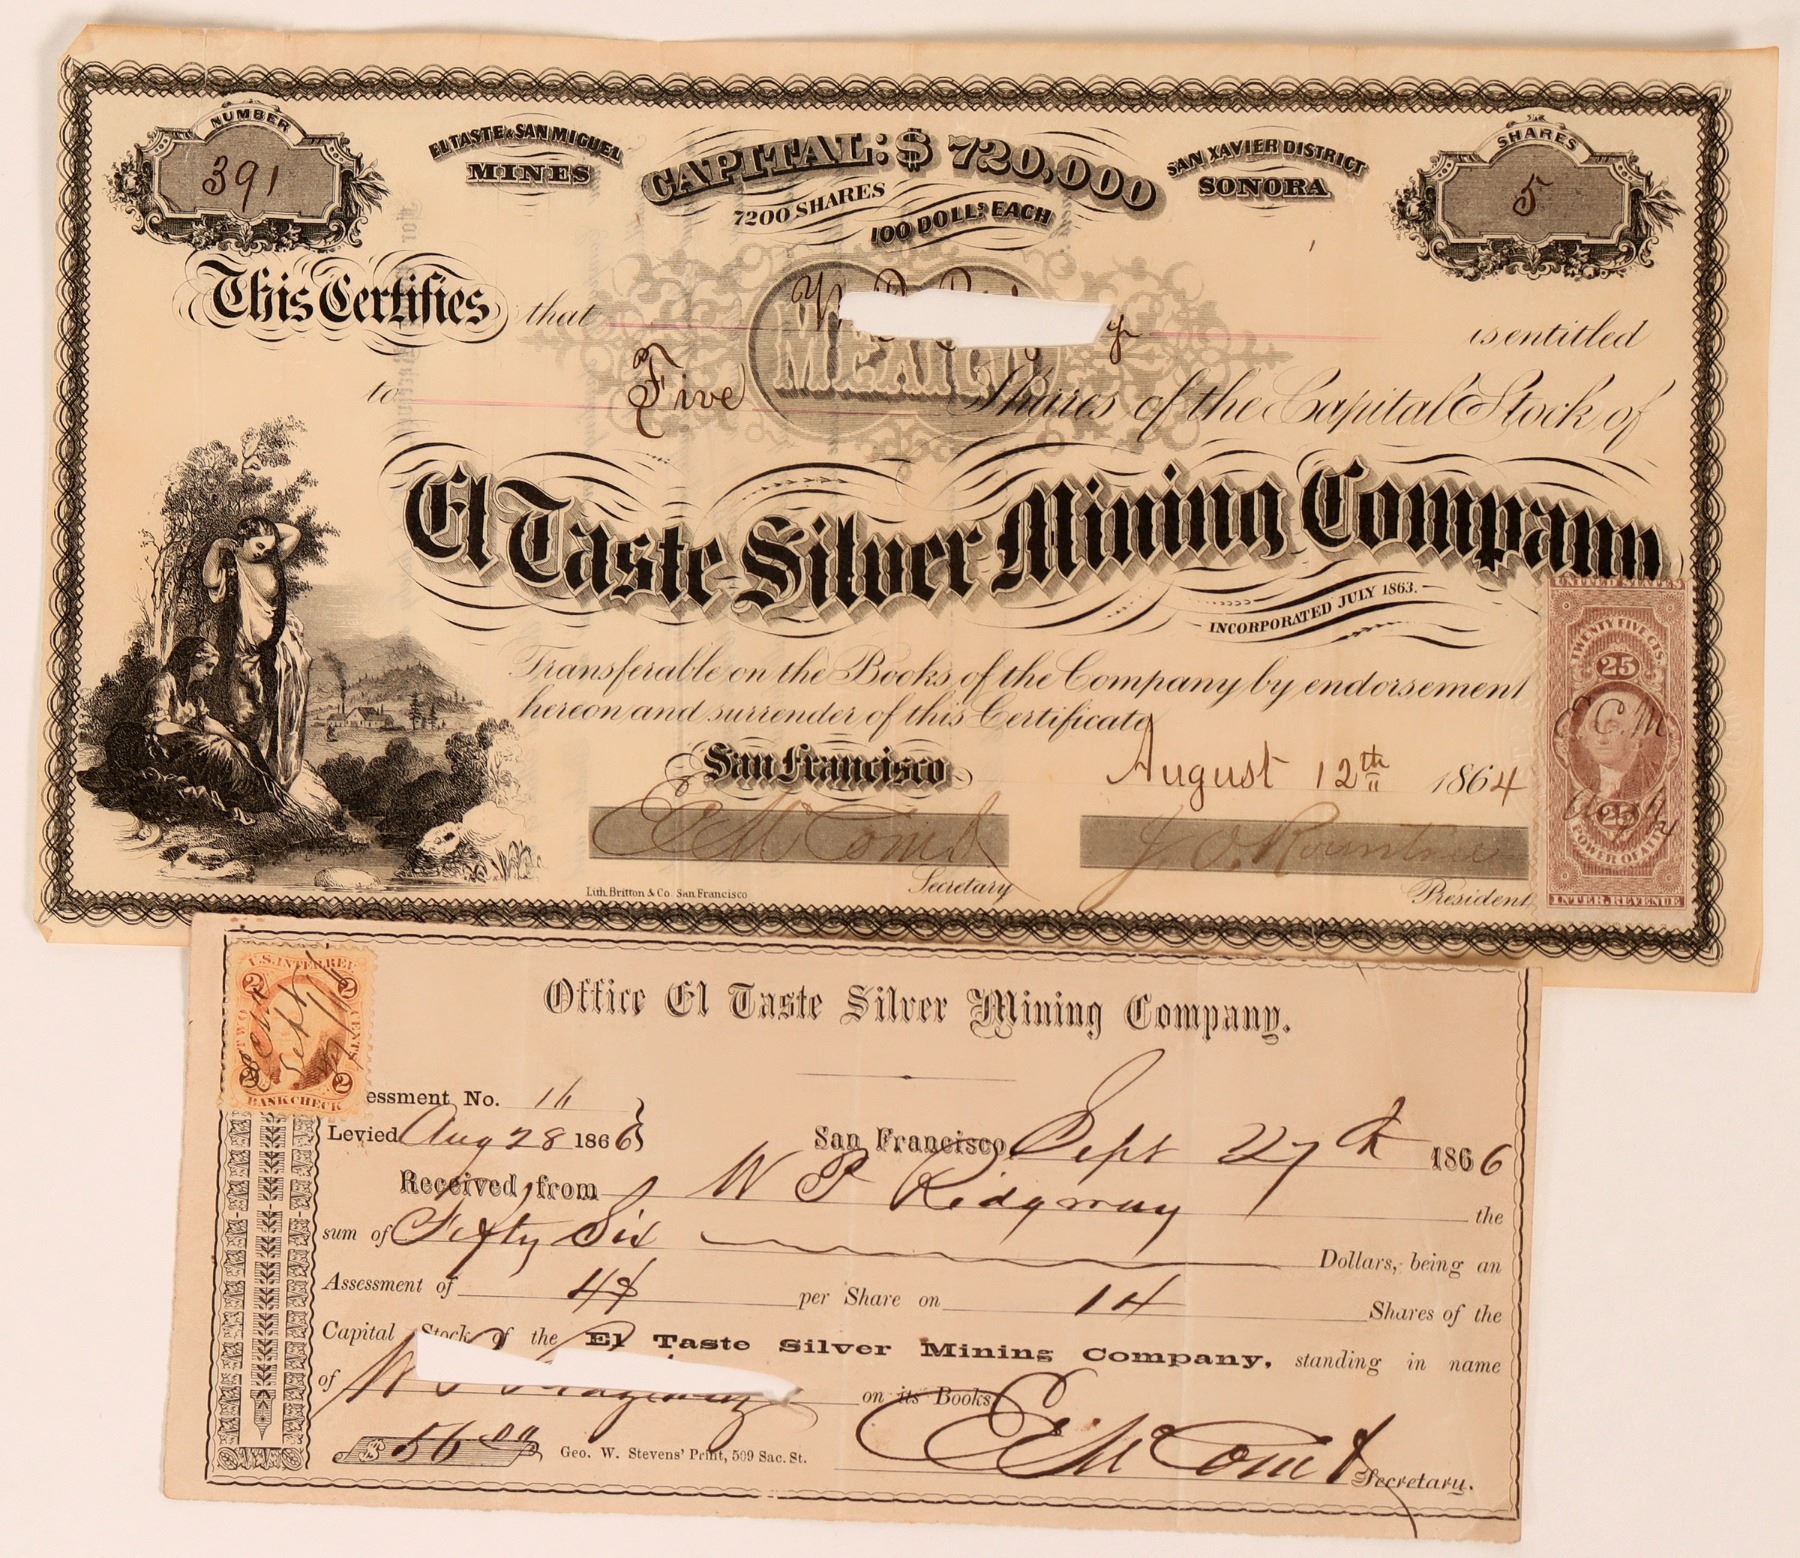 NUMBER
391
EL TASTE & SAN MIGUEL
MINES
CAPITAL: $ 720,000
7200 SHARES
100 DOLLS EACH
SAN XAVIER DISTRICT
SONORA
SHARES
5
This Certifies that W
y is entitled
MEXICO
to Five Shares of the Capital Stock of
El Taste Silver Mining Company
INCORPORATED JULY 1863.
Transferable on the Books of the Company by endorsement
hereon and surrender of this Certificate
San Francisco August 12th 1864
E J McComd
J O. Rountree
Lith. Britton & Co. San Francisco
Secretary
President
UNITED STATES
TWENTY FIVE CTS.
25
E.C.M.
25
POWER OF ATT
INTER. REVENUE
U.S. INTER. REV
2 2
TWO CENTS
2 2
BANK CHECK
Office El Taste Silver Mining Company.
essment No. 16
Levied Aug 28 1866
San Francisco Sept 27th 1866
Received from W P Ridgway the
sum of Fifty Six Dollars, being an
Assessment of 4$ per Share on 14 Shares of the
Capital Stock of the El Taste Silver Mining Company, standing in name
of W P Ridgway on its Books
$ 56.00
Geo. W. Stevens' Print, 509 Sac. St.
Secretary.